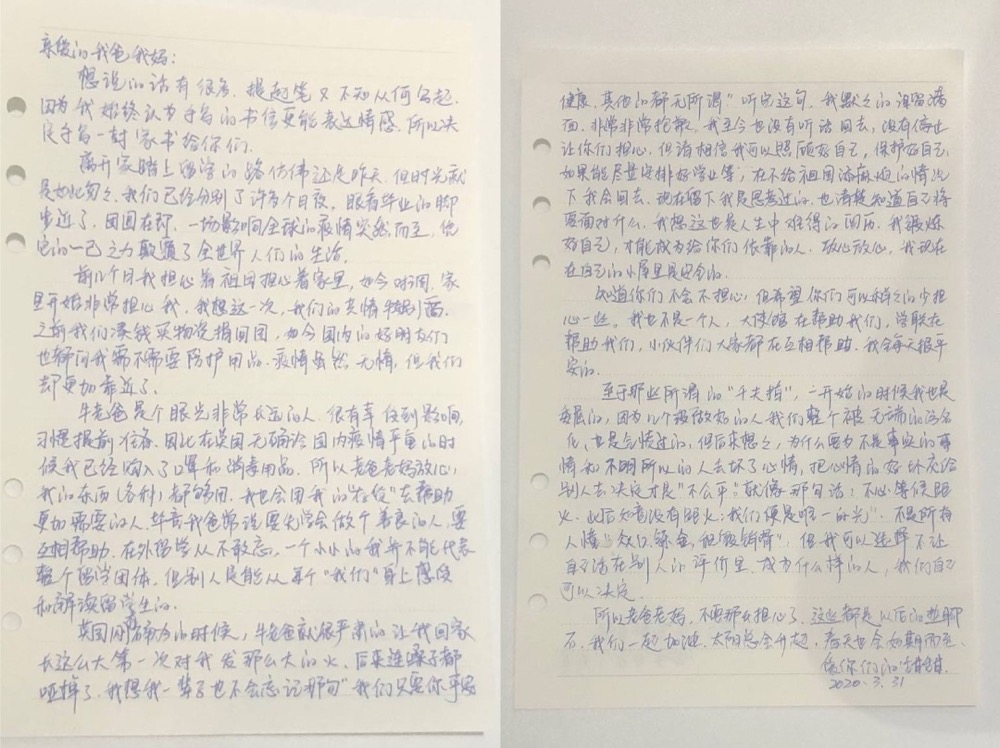 亲爱的我爸我妈：
想说的话有很多，提起笔又不知从何写起。
因为我始终认为手写的书信更能表达情感，所以决
定手写一封家书给你们。
离开家踏上留学的路仿佛还是昨天，但时光就
是如此匆匆，我们已经分别了许多个日夜。眼看毕业的脚
步近了，团圆在即，一场影响全球的疫情突然而至，凭
它的一己之力颠覆了全世界人们的生活。
前几个月我担心着祖国担心着家里，如今时间，家
里开始非常担心我，我想这一次，我们的亲情特别重。
之前我们凑钱买物资捐回国，如今国内的好朋友们
也都问我需不需要防护用品。疫情虽然无情，但我们
却更加靠近了。
牛老爸是个眼光非常长远的人，很有幸受到影响，
习惯提前准备。因此在英国无确诊国内疫情严重的时
候我已经购入了口罩和消毒用品。所以老爸老妈放心，
我的东西（各种）都够用。我也会用我的"存货"去帮助
更加需要的人，毕竟我爸常说要先学会做个善良的人，要
互相帮助。在外留学从不敢忘，一个小小的我并不能代表
整个留学团体，但别人是能从每个"我们"身上感受
和解读留学生的。
英国刚 的时候，牛老爸就很严肃的让我回家
长这么大第一次对我发那么大的火，后来连嗓子都
哑掉了，我想我一辈子也不会忘记那句"我们只要你平安
健康，其他的都无所谓"听完这句，我默默的泪留满
面，非常非常抱歉，我至今也没有听话回去，没有停止
让你们担心。但请相信我可以照顾好自己，保护好自己，
如果能尽量安排好学业等，在不给祖国添麻烦的情况
下我会回去。现在留下我是思考过的，也清楚知道自己将
要面对什么，我想这也是人生中难得的阅历，我锻炼
好自己，才能成为给你们依靠的人。放心放心，我现在
在自己的小屋里是安全的。
知道你们不会不担心，但希望你们可以稍稍的少担
心一些。我也不是一个人，大使馆在帮助我们，学联在
帮助我们，小伙伴们大家都在互相帮助。我会每天报平
安的。
至于那些所谓的"千夫指"，一开始的时候我也是
委屈的，因为几个被放大的人我们整个被无端的污名
化，也是气愤过的，但后来想想，为什么要为不是事实的事
情和不明所以的人去坏了心情，把心情的好坏交给
别人去决定才是"不公平"。就像那句话：不必等候炬
火，此后如竟没有炬火：我们便是唯一的光"，不是所有
人懂"众口铄金，积毁销骨"，但我可以选择不让
自己活在别人的评价里，成为什么样的人，我们自己
可以决定。
所以老爸老妈，不要那么担心了，这些都是以后的垫脚
石，我们一起加油，太阳总会升起，春天也会如期而至。
爱你们的
2020.3.31